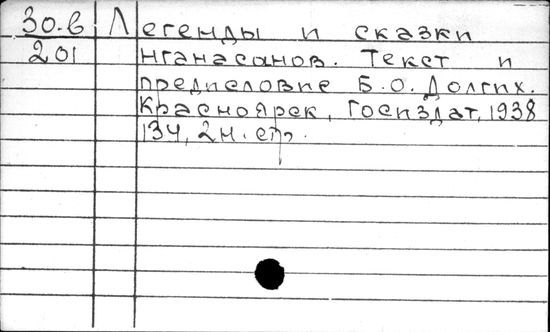 30.в Легенды и сказки
201 нганасанов. Текст и
предисловие Б.О. Долгих.
Красноярск, Госиздат, 1938
134, 2 н. стр.